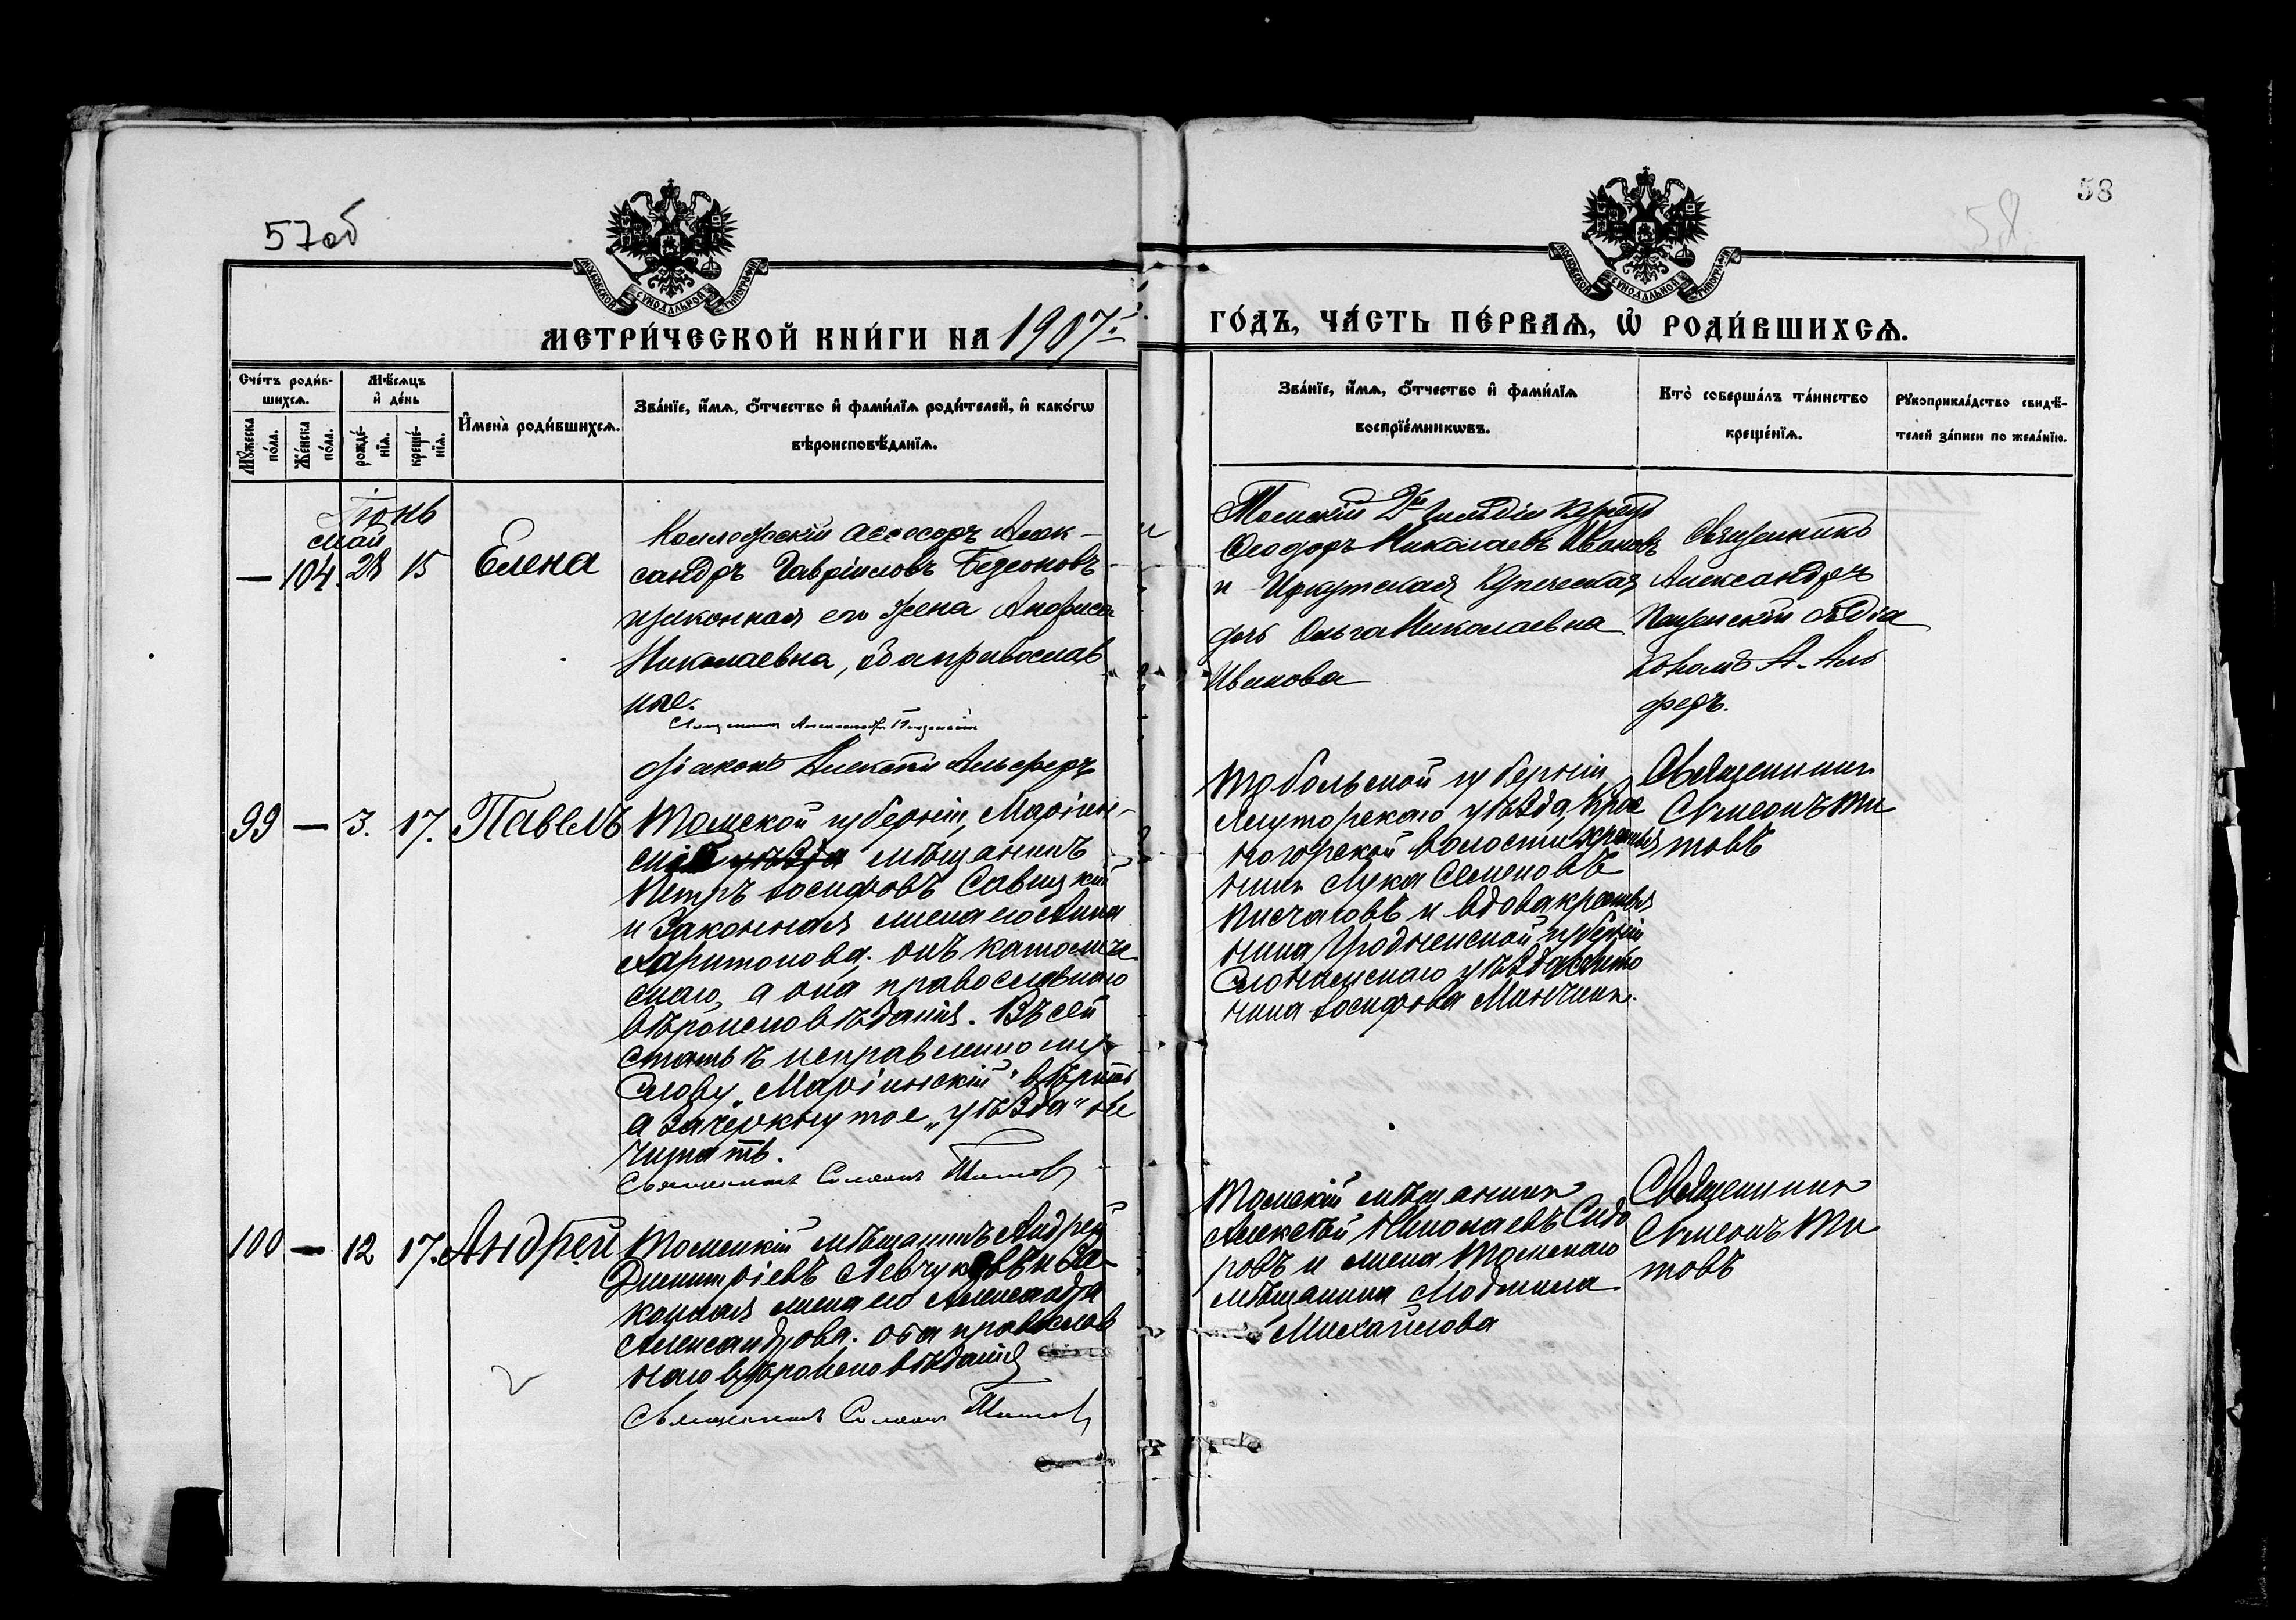 57об
58
58
МОСКОВСКОЙ СѴНОДАЛЬНОЙ ТИПОГРАФІИ
МОСКОВСКОЙ СѴНОДАЛЬНОЙ ТИПОГРАФІИ
МЕТРИ́ЧЕСКОЙ КНИ́ГИ НА 1907 г.
ГО́ДЪ, ЧА́СТЬ ПЕ́РВАѦ, Ѡ҆ РОДИ́ВШИХСѦ.
Сче́тъ роди́в-
шихсѧ.
Мꙋ́жеска
по́ла.
Же́нска
по́ла.
Мѣ́сѧцъ
и҆ де́нь
рожде́-
нїѧ.
креще́-
нїѧ.
И҆мена̀ роди́вшихсѧ.
Зва́нїе, и҆́мѧ, ѻ҆́тчество и҆ фами́лїѧ роди́телей, и҆ како́гѡ
вѣроисповѣ́данїѧ.
Зва́нїе, и҆́мѧ, ѻ҆́тчество и҆ фами́лїѧ
воспрїе́мникѡвъ.
Кто̀ соверша́лъ та́инство
креще́нїѧ.
Рꙋкоприкла́дство свидѣ́-
телей за́писи по жела́нїю.
Іюнь
Май
— 104. 28 15 Елена
Коллежскій ассесоръ Алек-
сандръ Гавріиловъ Гедеоновъ
и законная его жена Анфиса
Николаевна, оба православ
ные.
Священникъ Александръ
Діаконъ Алексѣй Альферъ
Томскій 2й гильдіи купецъ
Ѳеодоръ Николаевъ Ивановъ
и Иркутская купеческая
дочь Ольга Николаевна
Иванова
Священникъ
Александръ
съ діа
кономъ А. Аль
феръ.
99 — 3. 17. Павелъ
Томской губерніи, Маріин-
скій уѣзда мѣщанинъ
Петръ Іосифовъ Савицкій
и законная жена его Анна
Харитонова. онъ католиче
скаго, а она православнаго
вѣроисповѣданія. Въ сей
статьѣ исправленному
слову „Маріинскій" вѣрить
а зачеркнутое „уѣзда" не
читать.
Священникъ Симеонъ Титовъ
Тобольской губерніи
Ялуторскаго уѣзда, Крас
ногорской волости крестья
нинъ Лука Семеновъ
Писчаговъ и вдова крестья
нина Гродненской губерніи
Слонимскаго уѣзда
Іосифова
Священникъ
Симеонъ Ти
товъ
100 — 12 17. Андрей
Томскій мѣщанинъ Андрей
Димитріевъ Левчуковъ и за-
конная жена его Александра
Александрова. оба православ
наго вѣроисповѣданія
Священникъ Симеонъ Титовъ
Томскій мѣщанинъ
Алексѣй Николаевъ Сидо
ровъ и жена Томскаго
мѣщанина Людмила
Михайлова
Священникъ
Симеонъ Ти
товъ